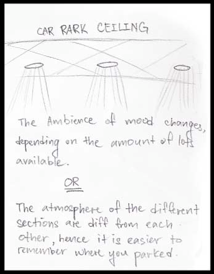 CAR PARK CEILING
The Ambience of mood changes,
depending on the amount of lots
available.
OR
The atmosphere of the different
sections are diff from each
other, hence it is easier to
remember where you parked.